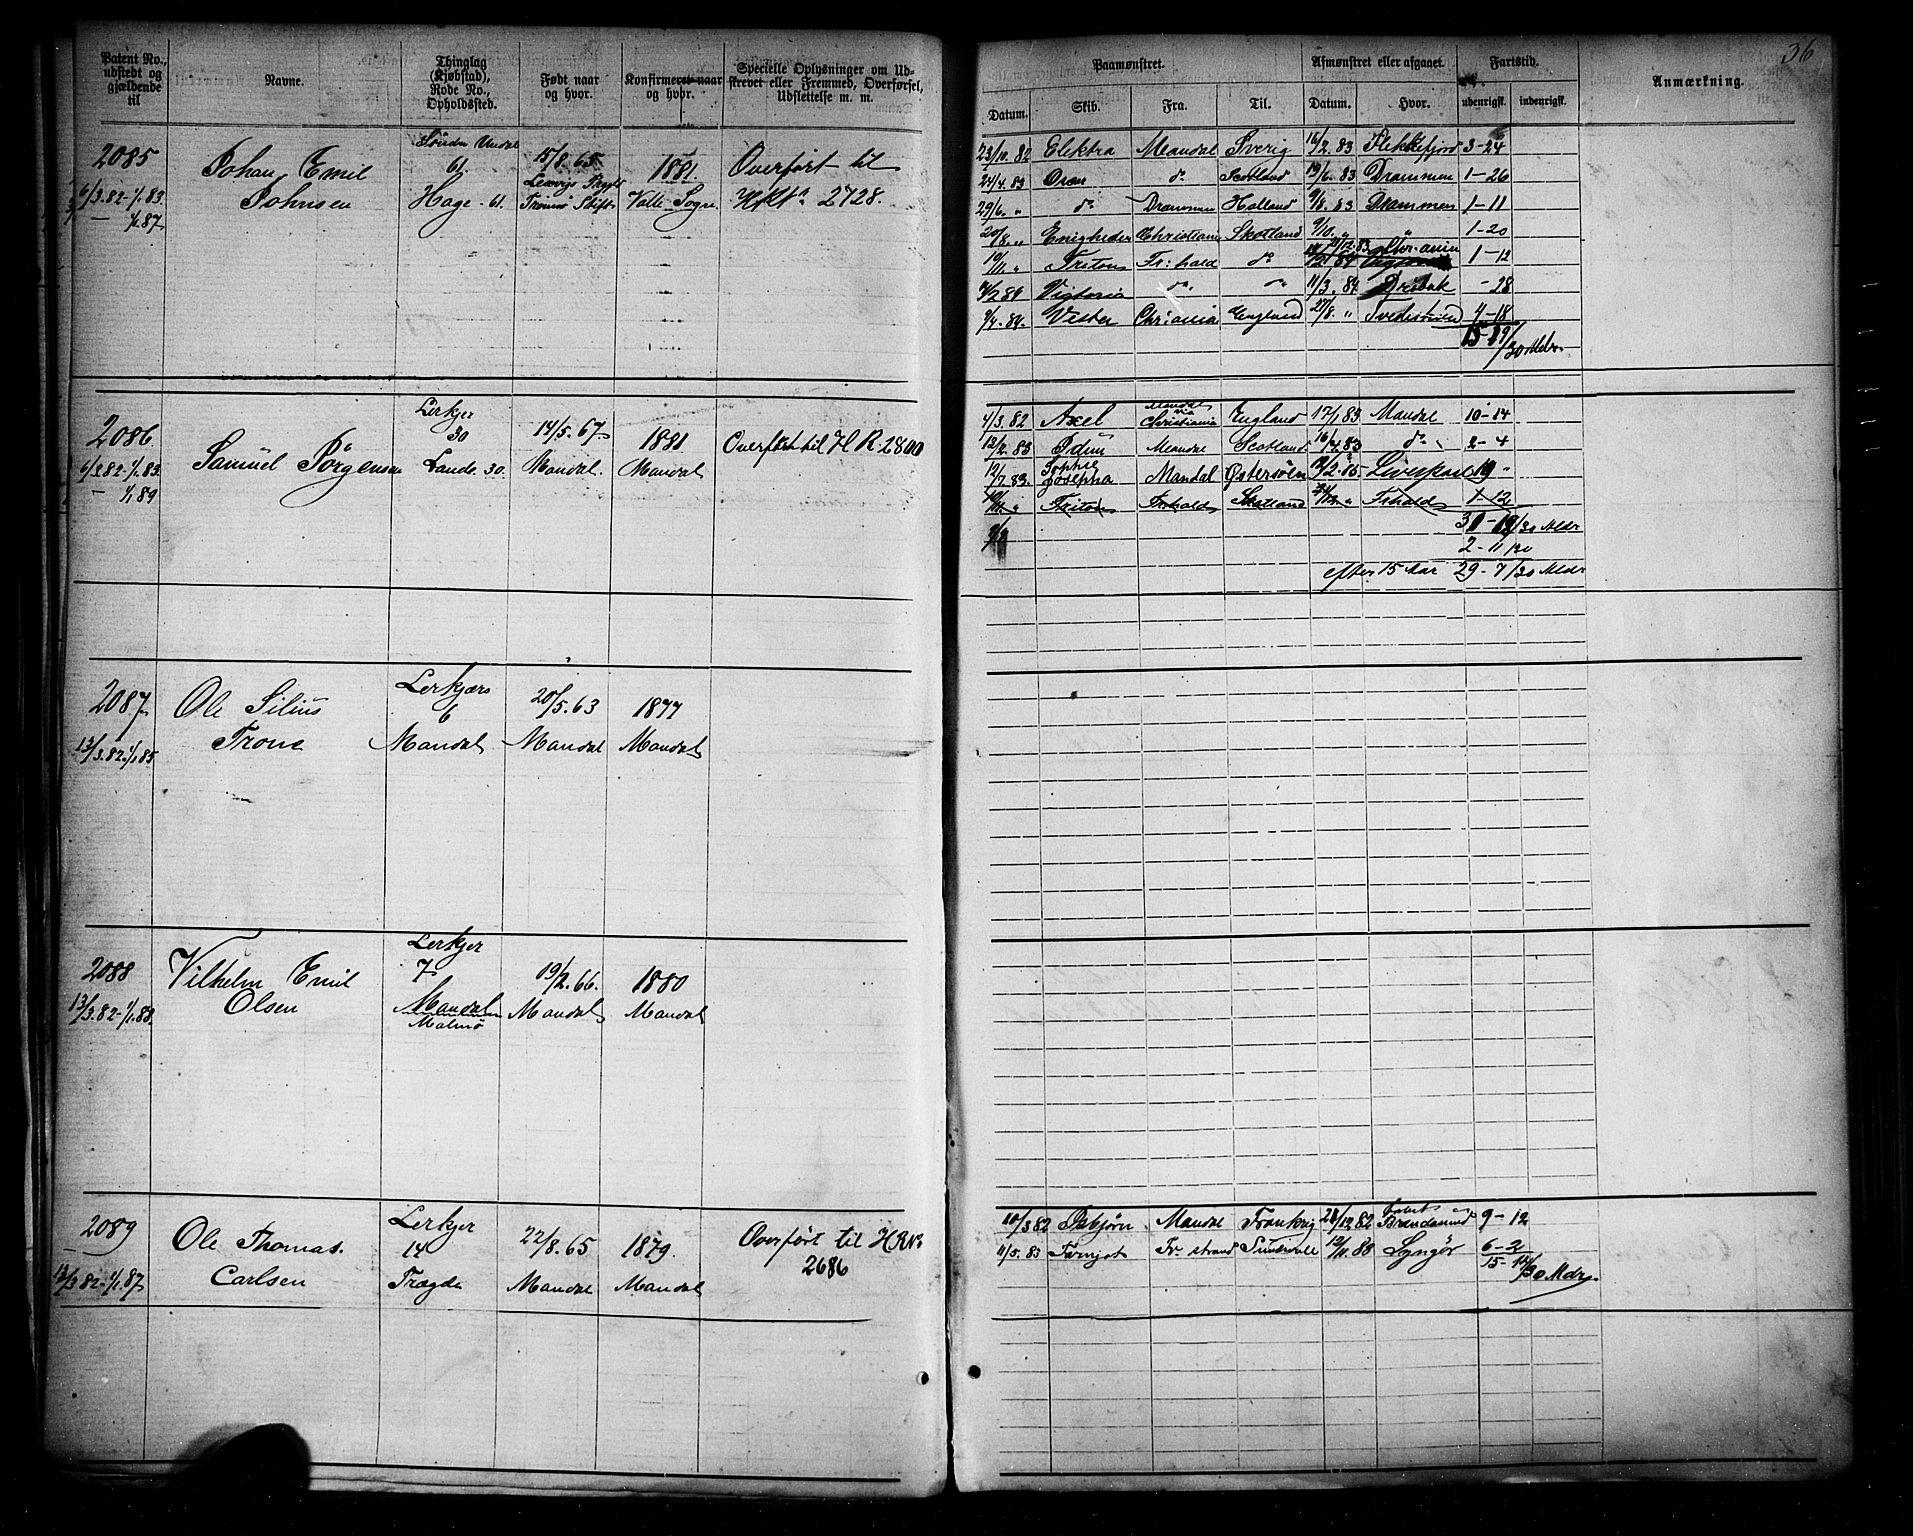 36
Patent No., udstedt og gjældende til
Navne.
Thinglag (Kjøbstad), Rode No., Opholdssted.
Født naar og hvor.
Konfirmeret naar og hvor.
Specielle Oplysninger om Udskrevet eller Fremmed, Overførsel, Udslettelse m. m.
Paamønstret.
Afmønstret eller afgaaet.
Fartstid.
Anmærkning.
Datum.
Skib.
Fra.
Til.
Datum.
Hvor.
udenrigsk.
indenrigsk.
2085
6/3.82-1/1.83.
1/1.87
Johan Emil
Johnsen
Søndre Undal
61.
Hage-61.
15/8.65.
Tromsø Stift
1881.
Valle Sogn.
Overført til
2728.
23/10.82 Elektra Mandal Sverig 16/2.83 Flekkefjord 3-24
24/4.83 do Scotland 19/6.83 Drammen 1-26
29/6. " do Drammen Holland 9/8.83 Drammen 1-11
20/8. " Enigheden Christiania Skotland 9/10. " " 1-20
10/11. " Triton Fr:hald do 1-12
Vigtoria do " 11/3.84. Drøbak -28
9/4.84. Vesta Chr:ania England 27/8. " Tvedestrand 4-18
15-19/30 Mdr.
2086
6/3.82-1/1.83.
1/1.89
Samuel Jørgensen
Lerkjer
30
Lande. 30.
14/5.67
Mandal.
1881
Mandal
Overført til H R 2800
4/3.82 Axel Mandal via Christiania England 17/1.83 Mandal 10-14
12/2.83 Idun Mandal Scotland 16/4.83 do 2-4
12/7.83. Sophie Josepha Mandal Østersøen Liverpool 19 "
10/11. " Triton Fr.hald Skotland Fr.hald 1-12
31-18/30 Mdr
2-11/30
efter 15 Aar 29-7/30 Mdr
2087
13/3.82-1/1.85
Ole Silius
Trone
Lerkjærs
6
Mandal
20/5.63
Mandal
1877
Mandal
2088
13/3.82-1/1.88.
Vilhelm Emil
Olsen
Lerkjer
7
Mandal
Malmø
19/2.66.
Mandal
1880
Mandal
2089
13/3.82-1/1.87
Ole Thomas.
Carlsen
Lerkjer
14
Trægde
22/8.65
Mandal
1879.
Mandal
Overført til H R No
2686
10/3.82 Asbjørn Mandal Frankrig 28/12.82 9-12
11/5.83 Fr strand Sundsvall 12/11.83 Lyngør 6-2
15-14/30 Mdr.